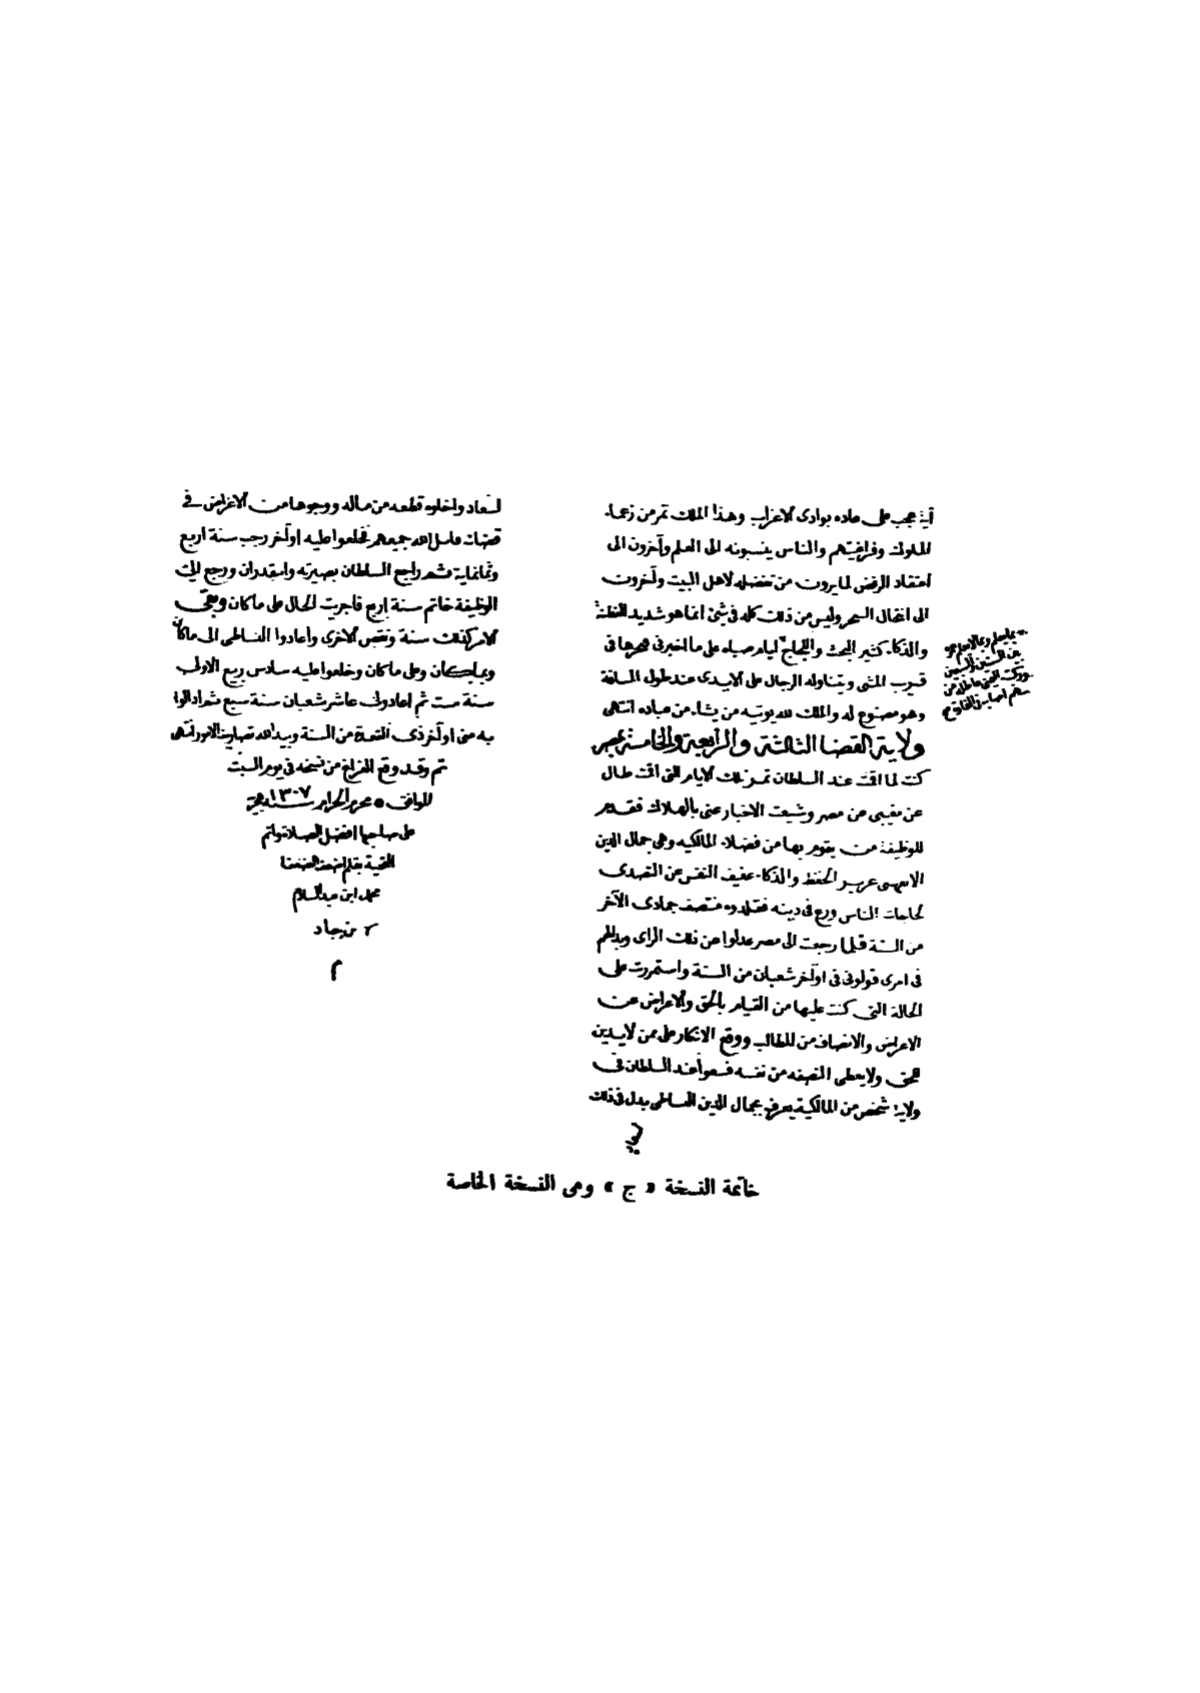 آية عجب على عاده بوادى الاعراب وهذا الملك تمر من زعماء
الملوك وفراعنتهم والناس ينسبونه الى العلم وآخرون الى
اعتقاد الرفض لما يرون من تفضيله لاهل البيت وآخرون
الى انتحال السحر وليس من ذلك كله فى شئ انما هو شديد الفطنة
والذكاء كثير البحث واللجاج
ايام صباه على ما اخبرنى فيجرها فى
قريب المشى ويتناوله الرجال على الايدى عند طول المسافة
وهو مصنوع له والملك لله يوتيه من يشاء من عباده انتهى
ولاية القضا الثالثة والرابعة والخامسة بمصر
كنت لما اقمت عند السلطان تمر تلك الايام التى اقمت طال
عن مغيبى عن مصر وشيعت الاخبار عنى بالهلاك فقدم
للوظيفة من يقوم بها من فضلاء المالكيه وهى جمال الدين
الاقفهسى غزير الحفظ والذكاء عفيف النفس عن التصدى
لحاجات الناس ورع فى دينه فقلدوه منتصف جمادى الآخر
من السنة فلما رجعت الى مصر عدلوا عن ذلك الراى وبدالهم
فى امرى فولونى فى اواخر شعبان من السنة واستمررت على
الحالة التى كنت عليها من القيام بالحق والاعراض عن
الاعراض والانصاف من للطالب ووقع الانكار على ممن لا يدين
للحق ولا يعطى النصفه من نفسه فسعوا عند السلطان فى
ولاية شخص من المالكية يعرف بجمال الدين البساطى بدل فى ذلك
لسعاة
لسعاد واخلوه قطعه من ماله ووجوها من الاعراض فى
قضائه قاتل الله جميعهم فخلعوا عليه اواخر رجب سنة اربع
وثمانماية ثم راجع السلطان بصيرته وانتقد راى ورجع الى
الوظيفة خاتم سنة اربع فاجريت الحال على ما كان وبقى
الامر كذلك سنة وبعض الاخرى واعادوا البساطى الى ما كان
وبما كان وعلى ما كان وخلعوا عليه سادس ربيع الاول
سنة ست ثم اعادونى عاشر شعبان سنة سبع ثم ادالوا
به منى اواخر ذى القعدة من السنة وبيد الله تصاريف الامور انتهى
تم وقد وقع الفراغ من نسخه فى يوم السبت
الموافق ٥ محرم الحرام سنة ١٣٠٧ هجرية
على صاحبها افضل الصلاة واتم
التحية بقلم اضعف الضعفا
محمد ابن عبد السلام
م
خاتمة النسخة « ج » وهى النسخة الخاصة